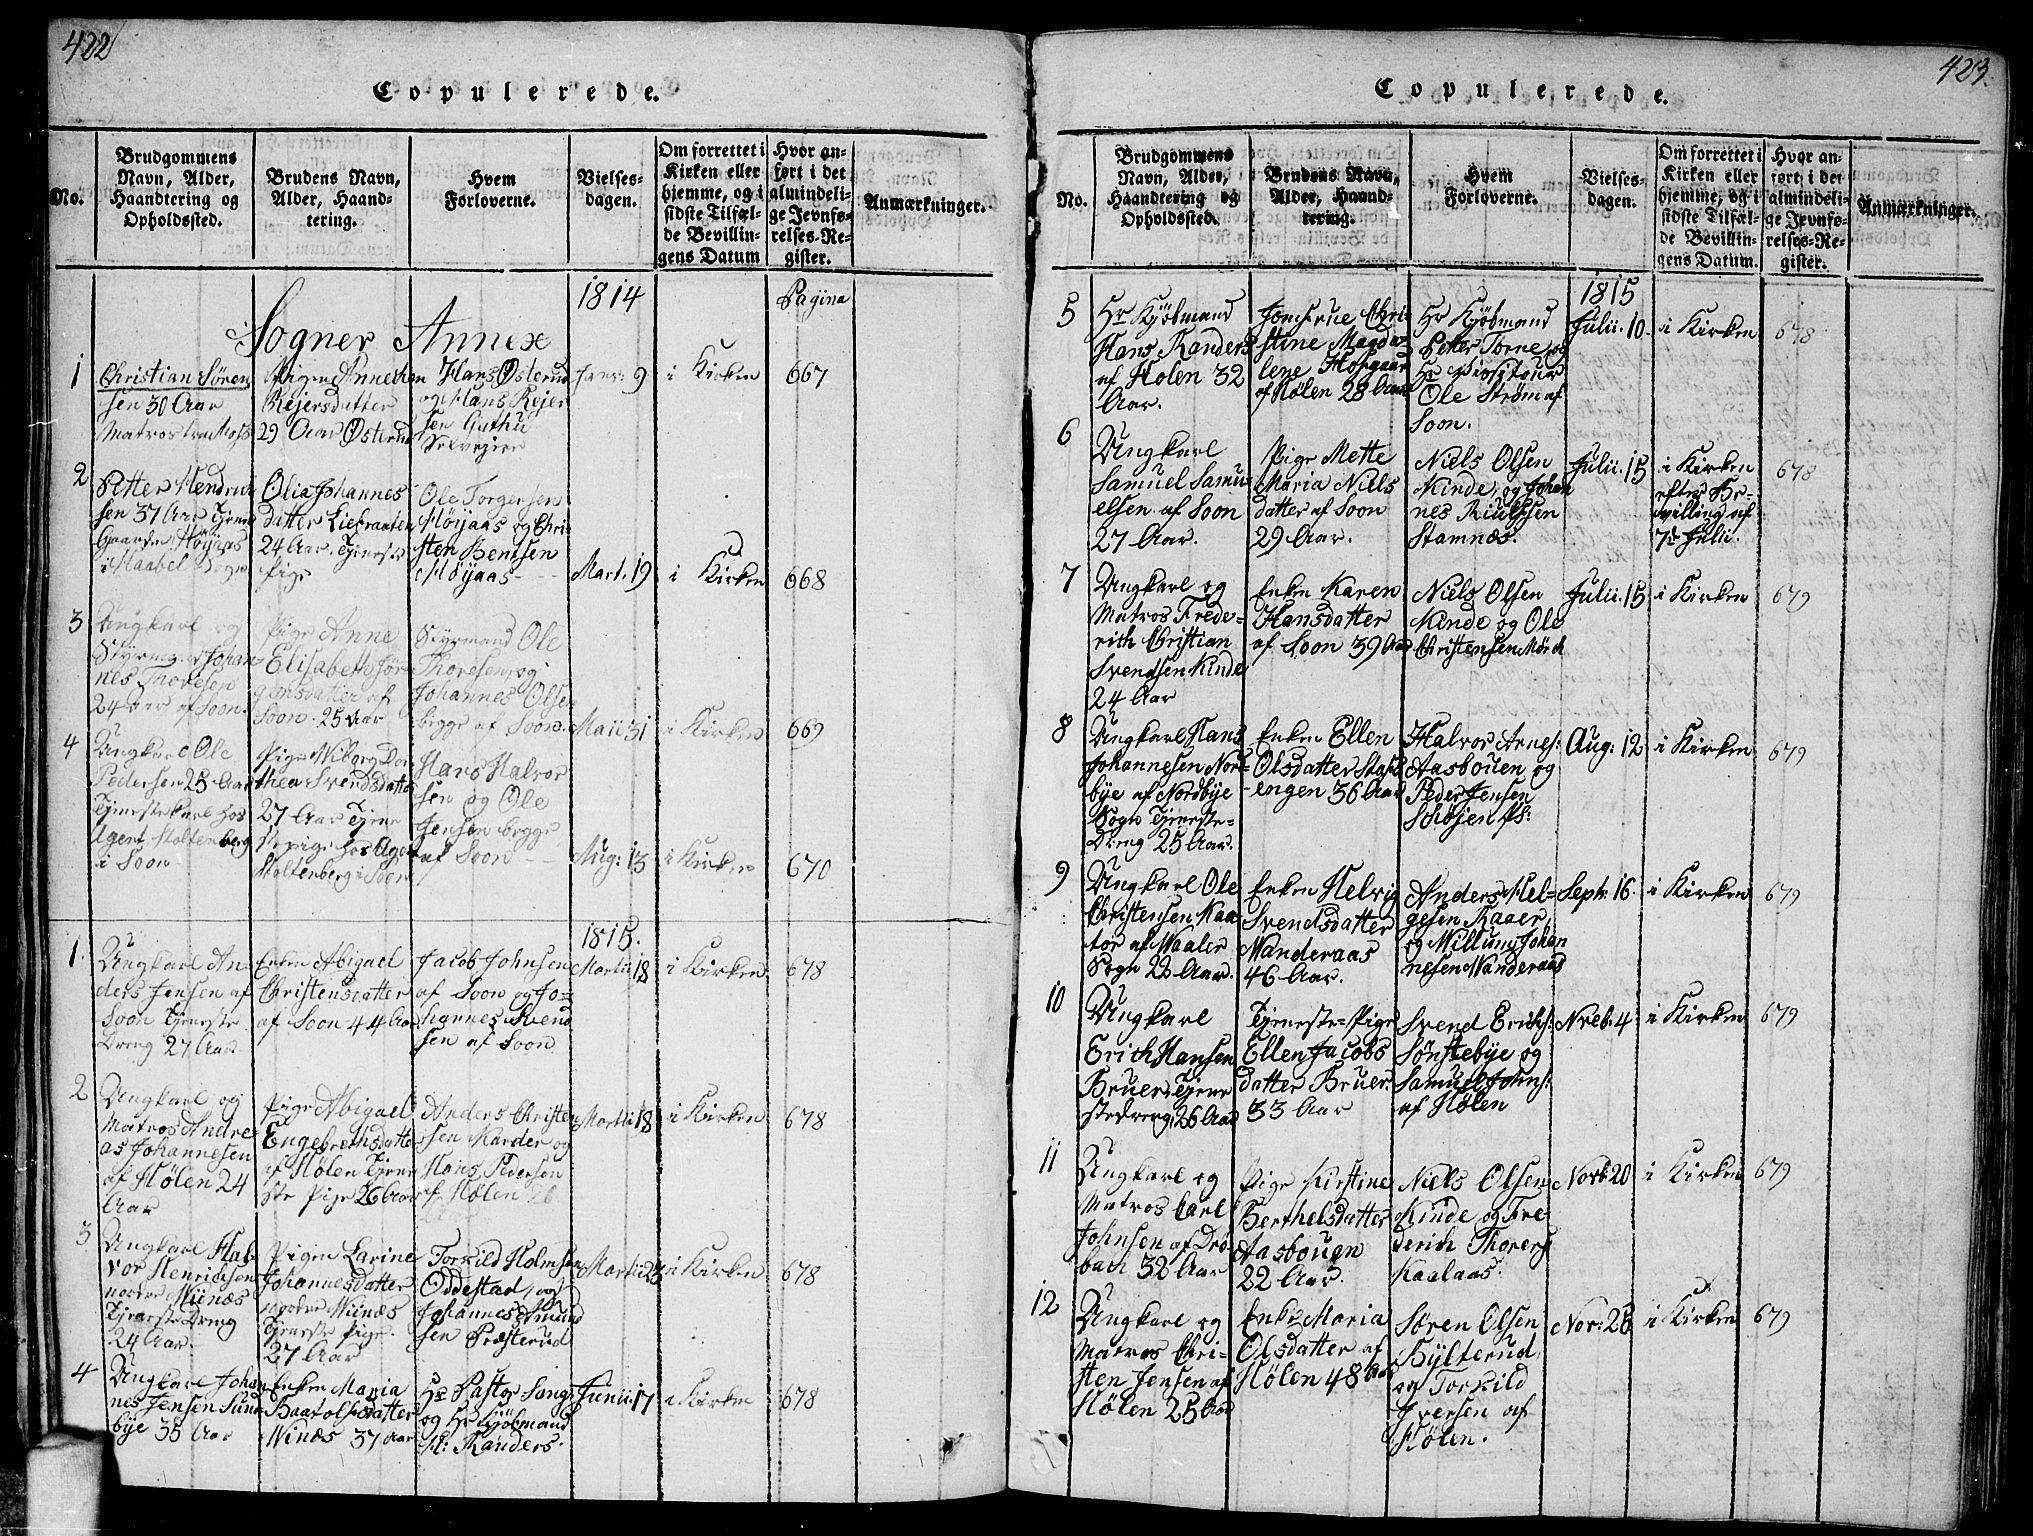 422
Copulerede.
No.
Brudgommens
Navn, Alder,
Haandtering og
Opholdssted.
Brudens Navn,
Alder, Haand-
tering.
Hvem
Forloverne.
Vielses-
dagen.
Om forrettet i
Kirken eller
hjemme, og i
sidste Tilfæl-
de Bevillin-
gens Datum
Hvor an-
ført i det
almindeli-
ge Jevnfø-
relses-Re-
gister.
Anmærkninger.
1814
Pagina
Sogner Annex
1
Christian Søren
sen 30 Aar
Matros
Pigen Anne
Rejersdatter
29 Aar Østerud
Hans Østerud
og Hans Rejer
sen Guthu
Selvejier
Janr: 9
i Kirken
667
2
Petter Hendrik
sen 37 Aar
Høijaas
i Haabel Sogn
Olia Johannes
datter
24 Aar. Tjeneste
Pige
Ole Torgersen
Høijaas og Chri
sten Bentsen
Høyaas
Mart. 19
i Kirken
668
3
Ungkarl og
Styrmand Johan-
nes Thoresen
24 Aar af Soon.
Pige Anne
Elisabeth Jør
gensdatter af
Soon. 25 Aar
Styrmand Ole
Thoresen, og
Johannes Olsen
begge af Soon.
Maii 31
i Kirken
669
4
Ungkarl Ole
Pedersen 25 Aar
Tjenestekarl hos
Agent Stoltenberg
i Soon
Pige Wiborg Dor
thea Svendsdatter
27 Aar Tjene
stepige hos Agent
Stoltenberg i Soon
Hans Halvor
sen og Ole
Jensen begge
af Soon
Aug: 13
i Kirken
670
1815.
1.
Ungkarl An-
ders Jensen af
Soon Tjeneste
Dreng 27 Aar
Enken Abigael
Christensdatter
af Soon 44 Aar
Jacob Johnsen
af Soon og Jo-
hannes Svend
sen af Soon
Martii 18
i Kirken
678
2
Ungkarl og
Matros Andre-
as Johannesen
af Hølen 24
Aar
Pige Abigael
Engebrethsdatter
af Hølen Tjene
ste Pige 26 Aar
Anders Christen
sen Karder og
Hans Pedersen
af Hølen
Martii 18
i Kirken
678
3
Ungkarl Hal-
vor Henrichsen
nordre Wiinæs
Tjeneste Dreng
24 Aar.
Pigen Larine
Johannesdatter
nordre Wiinæs
Tjeneste Pige.
27 Aar
Torkild Holmsen
Oddestad, og
Johannes Amund
sen Præsterud
Martii 23
i Kirken
678
4
Ungkarl Johan
nes Jensen Sund
bye 35 Aar
Enken Maria
Olsdatter
Winæs 37 Aar
Hr Pastor Lange
og Hr Kjøbmand
H: Randers.
Junii: 17
i Kirke
678
423.
Copulerede.
No.
Brudgommens
Navn, Alder,
Haandtering og
Opholdssted.
Brudens Navn,
Alder, Haand-
tering.
Hvem
Forloverne.
Vielses-
dagen.
Om forrettet i
Kirken eller
hjemme, og i
sidste Tilfæl-
de Bevillin-
gens Datum.
Hvor an-
ført i det
almindeli-
ge Jevnfø-
relses-Re-
gister.
Anmærkninger.
1815
5
Hr Kjøbmand
Hans Randers
af Holen 32
Aar.
Jomfrue Chri-
stine Magda-
lene Hofgaard
af Hølen 28 Aar
Hr Kjøbmand
Petter Torne og
Hr Visiteur
Ole Strøm af
Soon.
Julii. 10
i Kirken
678
6
Ungkarl
Samuel Samu
elsen af Soon
27 Aar.
Pige Mette
Maria Niels
datter af Soon
29 Aar.
Niels Olsen
Kinde, og Johan
nes Riulssen
Stamnæs.
Julii. 15
i Kirken
efter Be-
villing af
7de Julii.
678
7
Ungkarl og
Matros Frede-
rich Christian
Svendsen Kinde
24 Aar
Enken Karen
Hansdatter
af Soon 39 Aar
Niels Olsen
Kinde og Ole
Christensen Mørch
Julii. 15
i Kirken
679
8
Ungkarl Hans
Johannesen Nor-
bye af Nordbye
Sogn Tjeneste-
Dreng 25 Aar.
Enken Ellen
Olsdatter
engen 36 Aar
Halvor Arnes:
Aasbouen og
Peder Jensen
Schøjen
Aug: 12
i Kirken
679
9
Ungkarl Ole
Christensen Kaa
tor af Waaler
Sogn 22 Aar.
Enken Helvig
Svendsdatter
Wanderaas
46 Aar.
Anders Hel-
gesen Kaaer,
og Willum Johan
nesen Wanderaas
Septr. 16.
i Kirken
679
10
Ungkarl
Erich Hansen
Bruer Tjene
stedreng 26 Aar
Tjeneste-Pige
Ellen Jacobs
datter Bruer:
33 Aar
Svend Erichs:
Sønstebye og
Samuel Johns:
af Hølen
Nveb. 4
i Kirken
679
11
Ungkarl og
Matros Carl
Johnsen af Drø-
bach 32 Aar
Pige Kirstine
Berthelsdatter
Aasbouen
22 Aar.
Niels Olsen
Kinde og Fre-
derich Thorers
Kaalaas.
Norb. 20
i Kirken
679
12
Ungkarl og
Matros Chri-
sten Jensen af
Hølen 25 Aar
Enke Maria
Olsdatter af
Hølen 48 Aar
Søren Olsen
Hylterud
og Torkild
Iversen af
Hølen.
Nor: 26
i Kirken
679